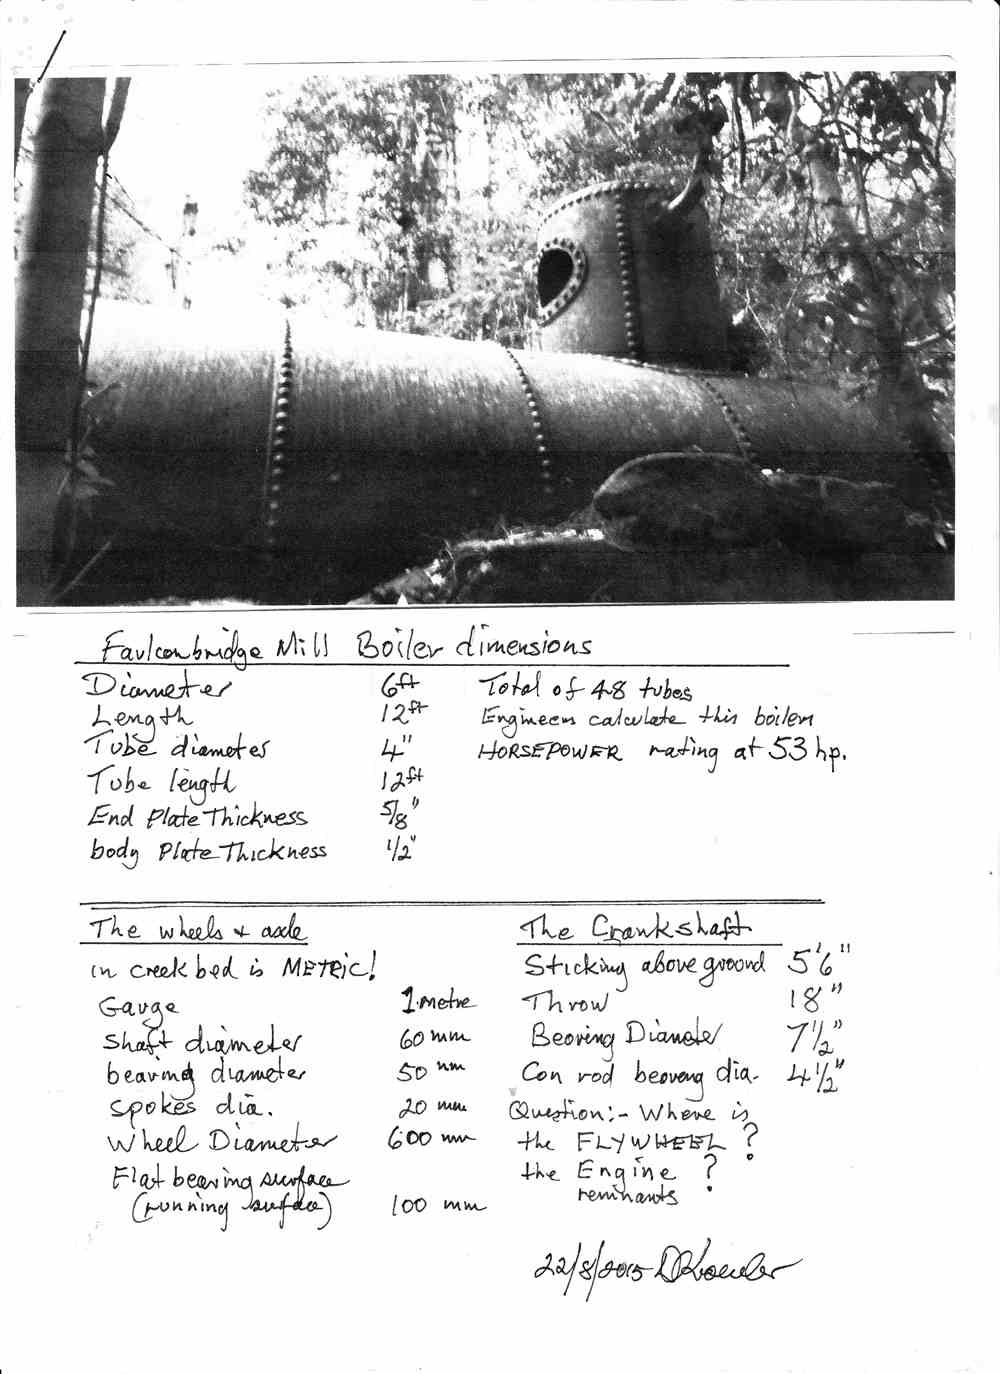 Faulconbridge Mill Boiler dimensions
Diameter 6ft
Length 12ft
Tube diameter 4"
Tube length 12ft
End Plate Thickness 5/8"
body Plate Thickness 1/2"
Total of 48 tubes
Engineers calculate this boilers
HORSEPOWER rating at 53 hp.
The wheels + axle
in creek bed is METRIC!
Gauge 1 metre
Shaft diameter 60 mm
bearing diameter 50 mm
spokes dia. 20 mm
Wheel Diameter 600 mm
Flat bearing surface
(running surface) 100 mm
The Crankshaft
Sticking above ground 5'6"
Throw 18"
Bearing Diameter 7 1/2"
Con rod bearing dia. 4 1/2"
Question:- Where is
the FLYWHEEL ?
the Engine ?
remnants
22/8/2015